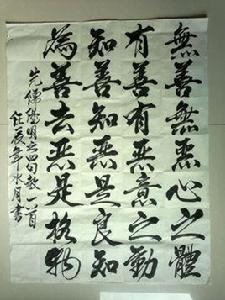 無善無惡心之體
有善有惡意之動
知善知惡是良知
為善去惡是格物
先儒陽明之四句教一首
壬辰年冰月書